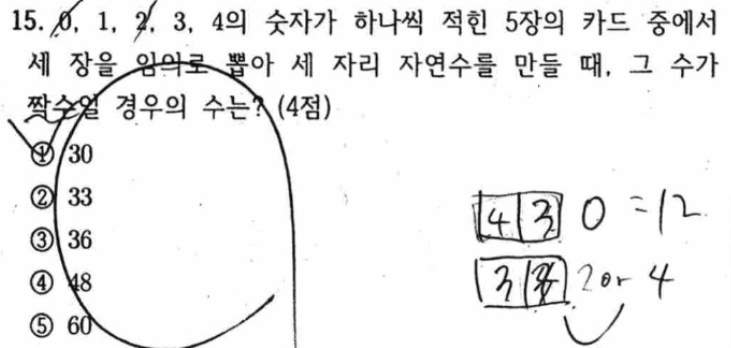 15. 0, 1, 2, 3, 4의 숫자가 하나씩 적힌 5장의 카드 중에서
세 장을 임의로 뽑아 세 자리 자연수를 만들 때, 그 수가
짝수일 경우의 수는? (4점)
① 30
② 33
③ 36
④ 48
⑤ 60
4 3 0 = 12
3 2 or 4